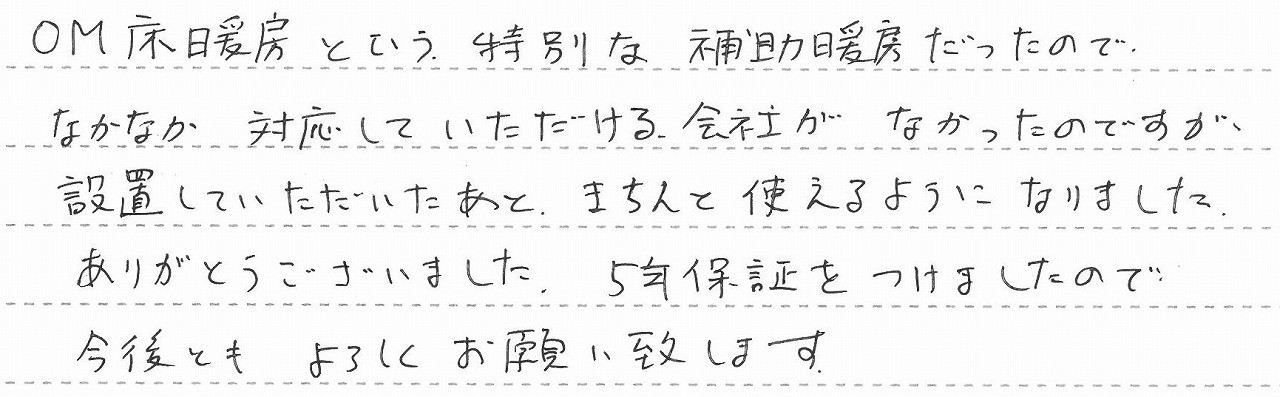 OM床暖房という、特別な 補助暖房だったので、
なかなか 対応していただける、会社が なかったのですが、
設置していただいたあと、きちんと 使えるように なりました。
ありがとうございました。 5年保証を つけましたので
今後とも よろしく お願い致します。